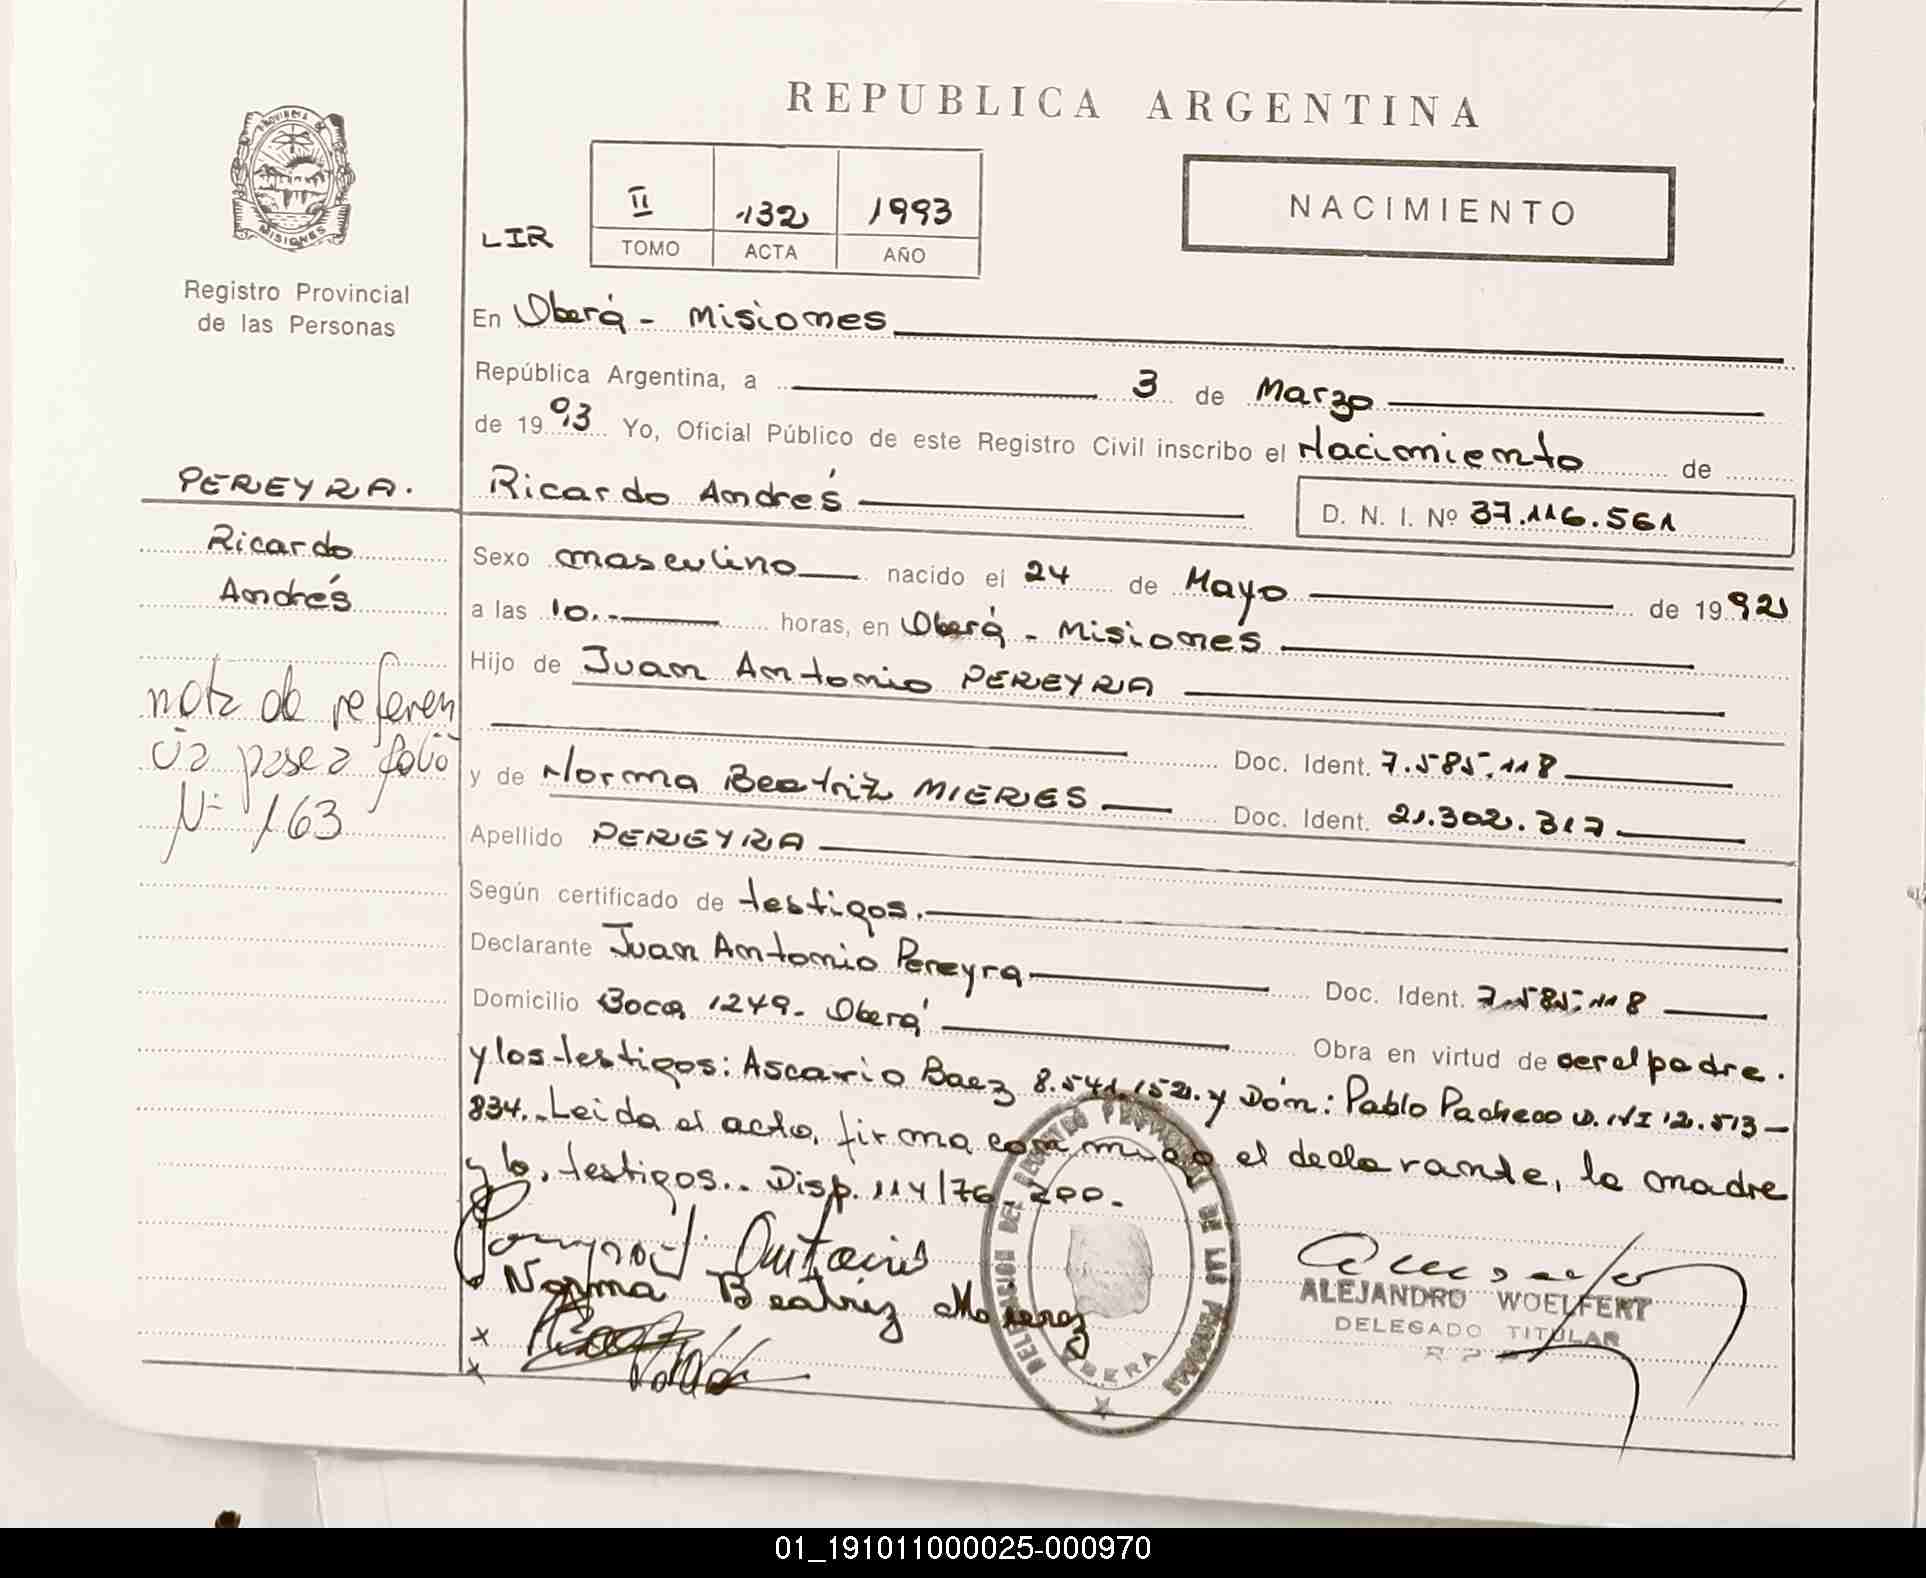 REPUBLICA ARGENTINA
PROVINCIA DE
MISIONES
Registro Provincial
de las Personas
LIR
II 132 1993
TOMO ACTA AÑO
NACIMIENTO
En Oberá - Misiones
República Argentina, a 3 de Marzo
de 1993 Yo, Oficial Público de este Registro Civil inscribo el Nacimiento de
PEREYRA.
Ricardo
Andrés
nota de referen
cia pase a folio
Nº 163
Ricardo Andrés
D. N. I. Nº 37.116.561
Sexo masculino nacido el 24 de Mayo de 1992
a las 10.- horas, en Oberá - Misiones
Hijo de Juan Antonio PEREYRA
Doc. Ident. 7.585.118
y de Norma Beatriz MIERES Doc. Ident. 21.302.317
Apellido PEREYRA
Según certificado de testigos.
Declarante Juan Antonio Pereyra Doc. Ident. 7.585.118
Domicilio Boca 1249. Oberá Obra en virtud de ser el padre.
y los testigos: Ascario Baez 8.541.152. y Dón: Pablo Pacheco D.NI 12.513-
834.. Leida el acto, firma conmigo el declarante, la madre
y lo, testigos.. Disp. 114/76-200.
Antonio
Norma Beatriz Mieres
x
x
DELEGACION DEL REGISTRO PROVINCIAL DE LAS PERSONAS
OBERA
ALEJANDRO WOELFERT
DELEGADO TITULAR
01_191011000025-000970